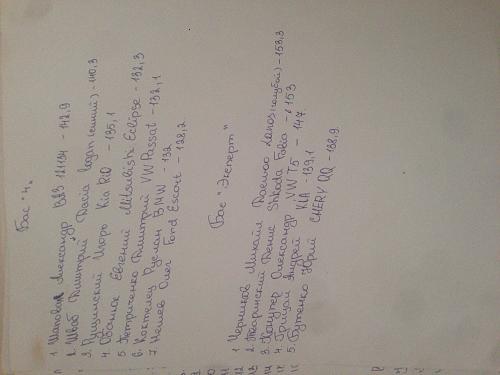 Бас "4"
1 Шаповал Александр ВАЗ 21134 - 142,9
2. Швab Дмитрий Dacia logan (синий) - 140,3
3. Пушинский Игорь Kia Rio - 135,1
4. Евгений Mitsubishi Eclipse - 132,3
5 Петриченко Дмитрий VW Passat - 132,1
6. Коктелец Руслан BMW - 132
7 Нешев Олег Ford Escort - 128,2
Бас "Эксперт"
1 Черников Михаил Daewoo Lanos (голубой) - 153,3
2. Тваринский Денис Shkoda Fabia - 153
3. Александр VW T5 - 147
4. Грицай Андрей KIA - 139,1
5. Бутенко Юрий CHERY QQ - 138,9